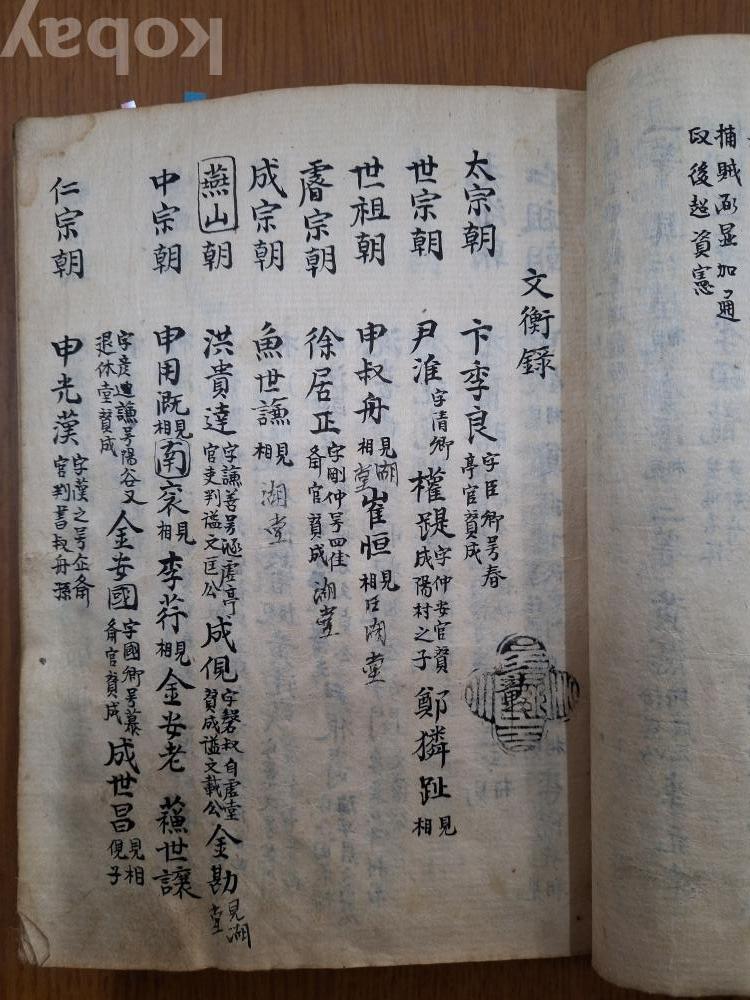 捕賊啚显加通
政後超資憲
文衡錄
太宗朝 卞季良 字臣卿号春亭官贊成
世宗朝 尹淮 字清卿 權踶 字仲安官贊成陽村之子 鄭獜趾 見相
世祖朝 申叔舟 見相 湖堂 崔恒 見相 湖堂
睿宗朝 徐居正 字剛仲号四佳斋官贊成 湖堂
成宗朝 魚世謙 見相 湖堂
燕山朝 洪貴達 字謙善号涵虛亭官吏判謚文匡公 成俔 字磬叔自虛堂贊成謚文載公 金勘 見湖堂
中宗朝 申用溉 見相 南衮 見相 李荇 見相 金安老 蘓世讓
字彦迪謙号陽谷又退休堂贊成 金安國 字國卿号慕斋官贊成 成世昌 見相俔子
仁宗朝 申光漢 字漢之号企斋官判書叔舟孫
kobay